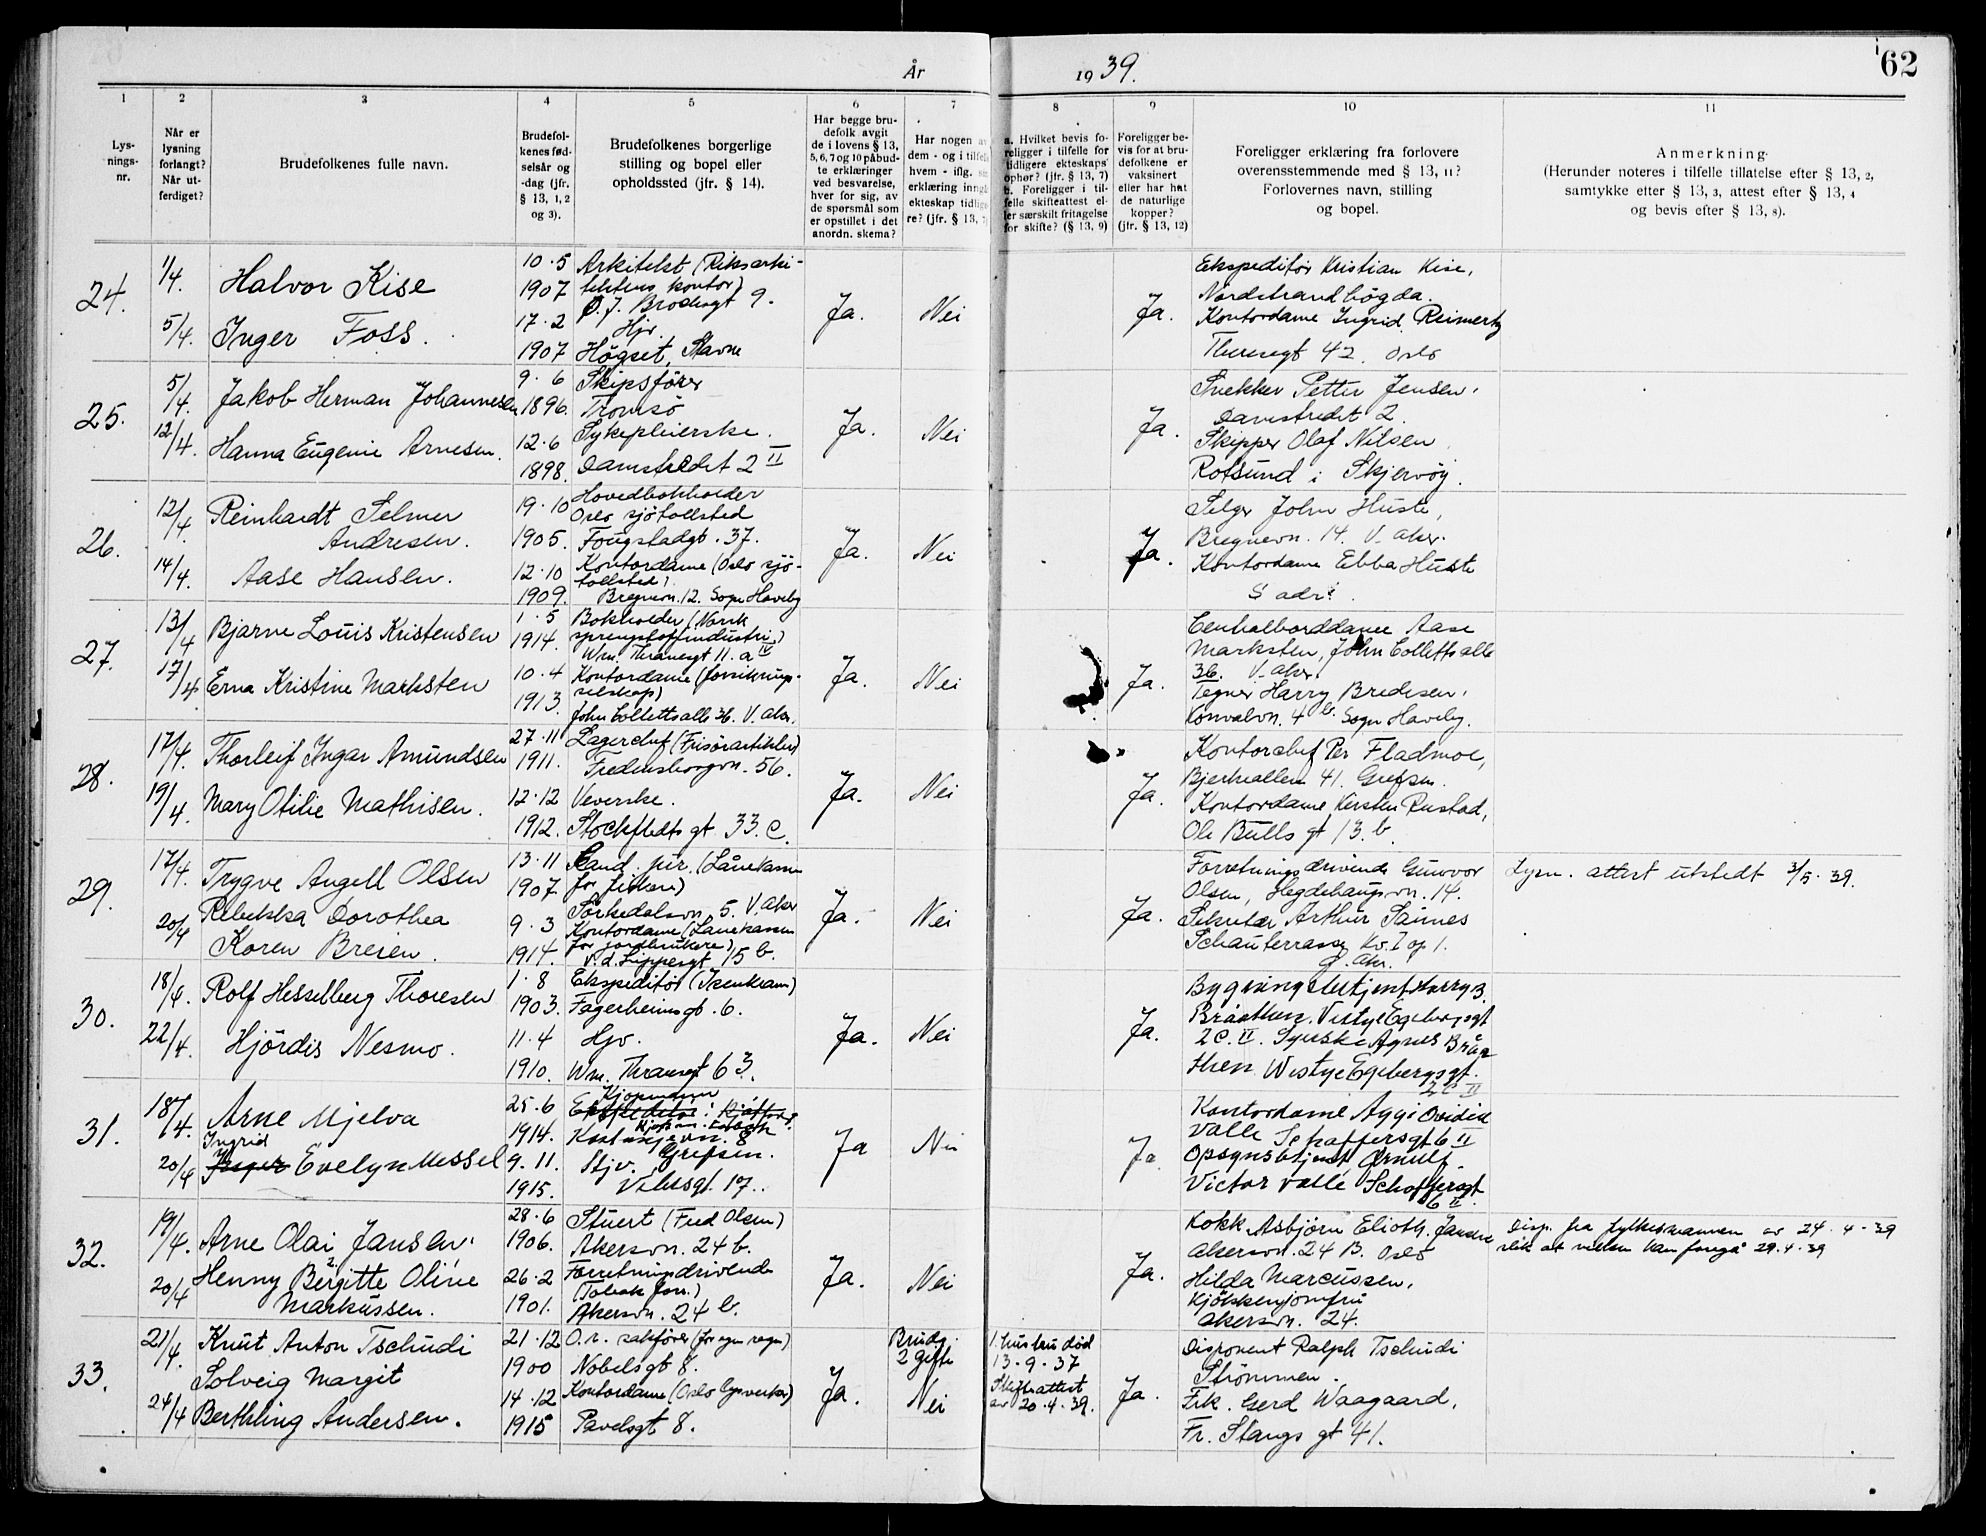 År 1939.
62
1
2
3
4
5
6
7
8
9
10
11
Lys-
nings-
nr.
Når er
lysning
forlangt?
Når ut-
ferdiget?
Brudefolkenes fulle navn.
Brudefol-
kenes fød-
selsår og
-dag (jfr.
§ 13, 1, 2
og 3).
Brudefolkenes borgerlige
stilling og bopel eller
opholdssted (jfr. § 14).
Har begge bru-
defolk avgit
de i lovens § 13,
5, 6, 7 og 10 påbud-
te erklæringer
ved besvarelse,
hver for sig, av
de spørsmål som
er opstillet i det
anordn. skema?
Har nogen
dem - og i
hvem - iflg.
erklæring
ekteskap
re? (jfr. § 13,
a. Hvilket bevis fo-
religger i tilfelle for
tidligere ekteskaps
ophør? (jfr. § 13, 7)
b. Foreligger i til-
felle skifteattest el-
ler særskilt fritagelse
for skifte? (§ 13, 9)
Foreligger be-
vis for at bru-
defolkene er
vaksinert
eller har hat
de naturlige
kopper?
(jfr. § 13, 12)
Foreligger erklæring fra forlovere
overensstemmende med § 13, 11?
Forlovernes navn, stilling
og bopel.
Anmerkning
(Herunder noteres i tilfelle tillatelse efter § 13, 2,
samtykke efter § 13, 3, attest efter § 13, 4
og bevis efter § 13, 8).
24.
1/4.
5/4.
Halvor Kise
Inger Foss.
10·5
1907
17·2
1907
Arkitekt (Riksarki-
tektens kontor)
O. J. Brochsgt 9.
Hjv.
Högset, Stavne
Ja.
Nei
Ja.
Ekspeditör Kristian Kise,
Nordstrandhögda.
Kontordame Ingrid Reimertz
Theresegt 42. Oslo
25.
5/4.
12/4.
Jakob Herman Johannesen
Hanna Eugenie Arnesen.
9·6
1896.
12·6
1898.
Skipsförer
Tromsö
Sykepleierske.
Damstredet 2 II
Ja.
Nei
Ja.
Snekker Petter Jensen,
Damstredet 2.
Skipper Olaf Nilsen
Rotsund i Skjervöy.
26.
12/4.
14/4.
Reinhardt Selmer
Andresen.
Aase Hansen.
19·10
1905.
12·10
1909.
Hovedbokholder
Oslo sjötollsted
Fougstadgt. 37.
Kontordame (Oslo sjö-
tollsted).
Bregnevn. 12. Sogn Haveby
Ja.
Nei
Ja.
Selger John Huste,
Bregnevn. 14. V. Aker.
Kontordame Ebba Huste
S adr.
27.
13/4
17/4
Bjarne Louis Kristensen
Erna Kristine Marksten
1·5
1914.
10·4
1913.
Bokholder (Norsk
sprengstoffindustri)
Wm. Thranesgt 11. a IV
Kontordame (forsikrings-
selskap)
John Colletts allé 36. V. Aker.
Ja.
Nei
Ja.
Centralborddame Aase
Marksten, John Colletts allé
36. V. Aker.
Tegner Harry Bredesen,
Konvalvn. 4 b. Sogn Haveby.
28.
17/4.
19/4.
Thorleif Ingar Amundsen
Mary Otilie Mathisen.
27·11
1911.
12·12
1912.
Lagerchef (Frisörartikler)
Fredensborgvn. 56.
Veverske.
Stockfledts gt. 33. c.
Ja.
Nei
Ja.
Kontorchef Per Fladmoe,
Bjerkealleen 41. Grefsen.
Kontordame Kirsten Rustad,
Ole Bulls gt 13. b.
29.
17/4.
20/4
Trygve Angell Olsen
Rebekka Dorothea
Koren Breien.
13·11
1907
9·3
1914.
Cand. jur. (Lånekassen
for fiskere)
Sörkedalsvn. 5. V. Aker
Kontordame (Lånekassen
for jordbrukere)
v. d. Lippesgt 15 b.
Ja.
Nei
Ja.
Forretningsdrivende Gunvor
Olsen, Hegdehaugsvn. 14.
Sekretær Arthur Saines
Schauterrasse Kv. I op 1.
Ø. Aker.
Lysn. attest utstedt 3/5. 39.
30.
18/4.
22/4.
Rolf Hesselberg Thoresen
Hjördis Nesmo.
1·8
1903.
11·4
1910.
Ekspeditör (Isenkram)
Fagerheimsgt. 6.
Hjv.
Wm. Thranesgt 63.
Ja.
Nei
Ja.
Bygningsbetjent Harry
Bråathen. Vestye Egebergsgt
2 C. II. Syerske Agnes Bråa
then Westye Egebergsgt.
2 C II
31.
18/4.
20/4
Arne Mjelva
Ingrid
Inger Evelyn Messel
25·6
1914.
9·11.
1915.
Kjöpmann
Ekspeditör
Grefsen.
Stjv.
Ja
Nei
Ja.
Kontordame Aggi Ovidia
Valle Schaffersgt 6 II
Opsynsbetjent Ørnulf
Victor Valle Schaffersgt
6 II.
32.
19/4.
20/4
Arne Olai Jansen.
Henny Bergitte Oline
Markussen.
28·6
1906.
26·2
1901.
Stuert (Fred Olsen)
Akersvn. 24 b.
Forretningsdrivende
(Tobak forr.)
Akersvn. 24 b.
Ja.
Nei
Ja.
Kokk Asbjörn Elioth. Jansen
Akersvn. 24 B. Oslo
Hilda Marcussen,
Kjökkenjomfru
Akersvn. 24.
Disp. fra fylkesmannen av 24.4.39
slik at vielsen kan foregå 29.4.39
33.
21/4.
24/4
Knut Anton Tschudi
Solveig Margit
Berthling Andersen.
21·12
1900
14·12
1915
O.r. sakförer (for egen regn)
Nobelsgt 8.
Kontordame (Oslo Gasverker)
Pavelsgt 8.
Ja.
Brudg.
2 gifte
Nei
1. hustru död
13·9·37
Skifteattest
av 20·4·39.
Ja.
Disponent Ralph Tschudi
Strömmen.
Frk. Gerd Waagaard,
Fr. Stangs gt 41.